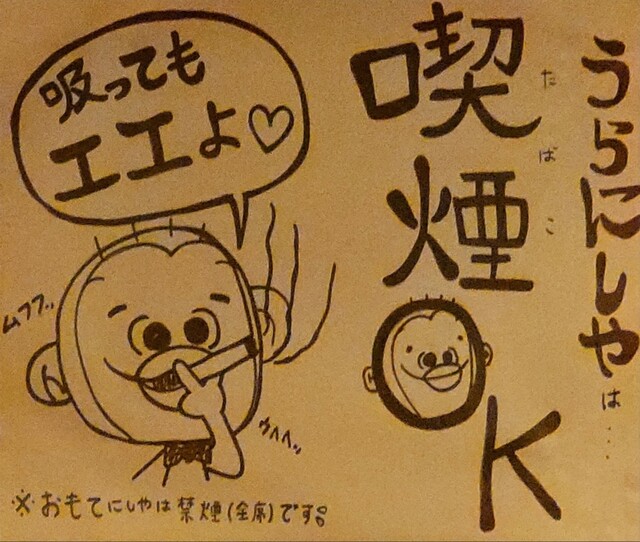 うらにしやは…
喫煙
たばこ
OK
吸っても
エエよ♡
ムフフ..
ウヘヘ..
※おもてにしやは禁煙(全席)です。